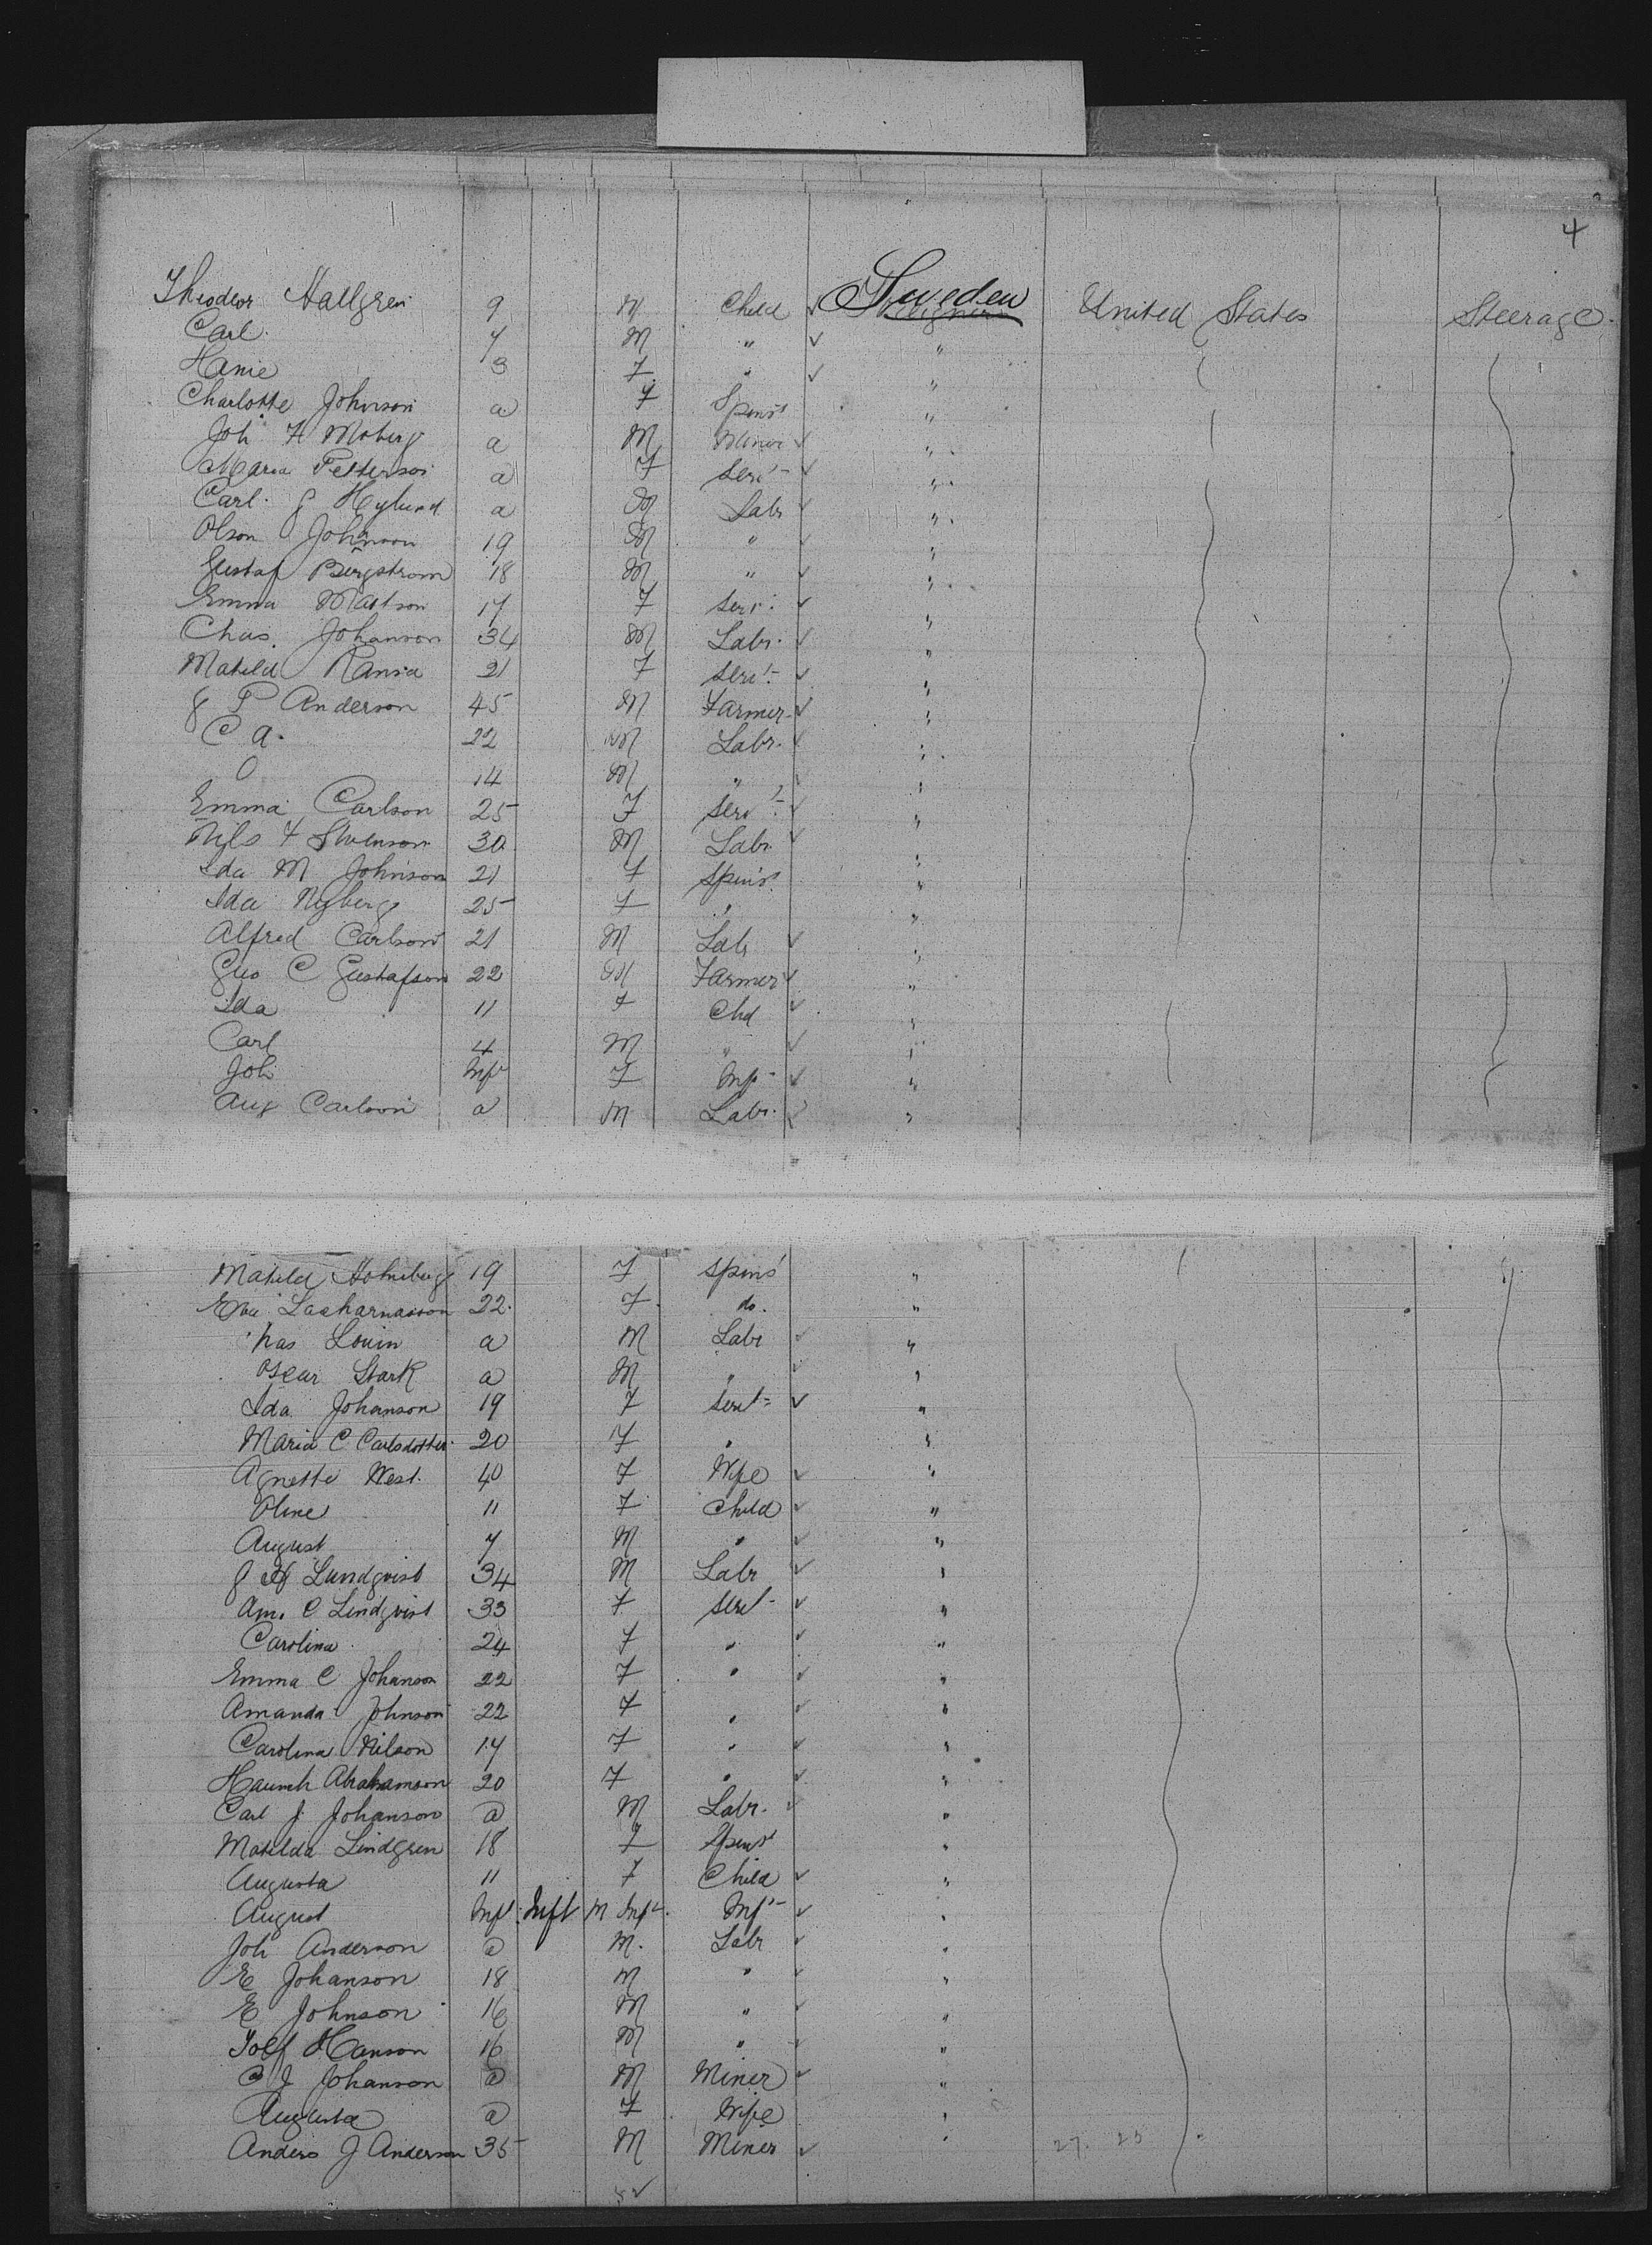 4
Theodor Hallgren 9 M Child ✓ Sweden United States Steerage.
Carl 7 M " ✓ "
Hanie 3 F " ✓ "
Charlotte Johnson a F Spins "
Joh F Moberg a M Miner ✓ "
Maria Petterson a F Servt ✓ "
Carl J Hylund a M Labr ✓ "
Olson Johnson 19 M " ✓ "
Gustaf Bergstrom 18 M " ✓ "
Emma Matson 17 F Serv. ✓ "
Chas. Johanson 34 M Labr. ✓ "
Matild Ransa 21 F Servt. ✓ "
J P Anderson 45 M Farmer. ✓ "
C A. 22 M Labr. ✓ "
O 14 M " ✓ "
Emma Carlson 25 F Servt. ✓ "
Nils F Swenson 30 M Labr. ✓ "
Ida M Johnson 21 F Spins. "
Ida Nyberg 25 F " "
Alfred Carlson 21 M Labr ✓ "
Gus C Gustafson 22 M Farmer ✓ "
Ida 11 F Chd ✓ "
Carl 4 M " ✓ "
Joh Inft F Inft ✓ "
Aug Carlson a M Labr. ✓ "
Matild Holmberg 19 F Spins "
Eva Zacharnasson 22. F. do. "
has Louin a M Labr ✓ "
Oscar Stark a M " ✓ "
Ida Johanson 19 F Servt ✓ "
Maria C. Carlsdotter 20 F " "
Agnette West. 40 F Wife ✓ "
Oline 11 F Child ✓ "
August 7 M " ✓ "
J Lundqvist 34 M Labr ✓ "
Am. C Lindqvist 33 F Servt ✓ "
Carolina 24 F " ✓ "
Emma C Johanson 22 F " ✓ "
Amanda Johnson 22 F " ✓ "
Carolina Nilson 17 F " ✓ "
Abrahamson 20 F " ✓ "
Carl J. Johanson a M Labr. ✓ "
Matilda Lindgren 18 F Spins "
Augusta 11 F Child ✓ "
August Inft. Inft M Inft. Inft ✓ "
Joh Anderson a M. Labr ✓ "
E Johanson 18 M " ✓ "
E Johnson 16 M " ✓ "
Hanson 16 M " ✓ "
C J Johanson a M Miner ✓ "
Augusta a F Wife "
Anders J Anderson 35 M Miner ✓ " 27. 25
52